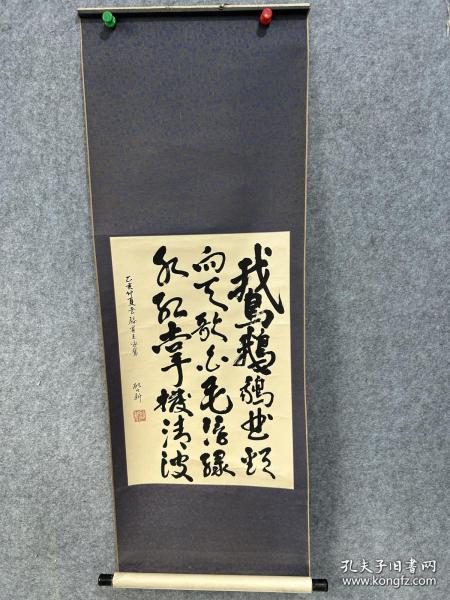 鹅鹅鹅曲项
向天歌白毛浮绿
水红掌拨清波
乙亥仲夏
孔夫子旧书网
www.kongfz.com